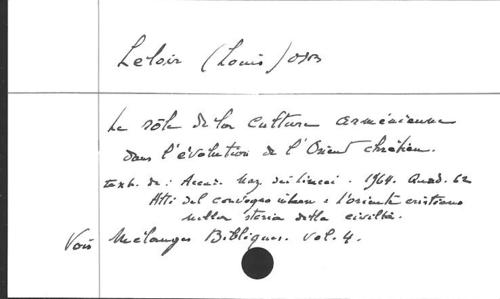 Leloir (Louis) OSB
Le rôle de la culture arménienne
dans l'évolution de l'Orient chrétien.
Extr. de: Accad. Naz. dei Lincei. 1964. Quad. 62
Atti del convegno intern. : l'oriente cristiano
nella storia della civiltà.
Voir Mélanges Bibliques. vol. 4.